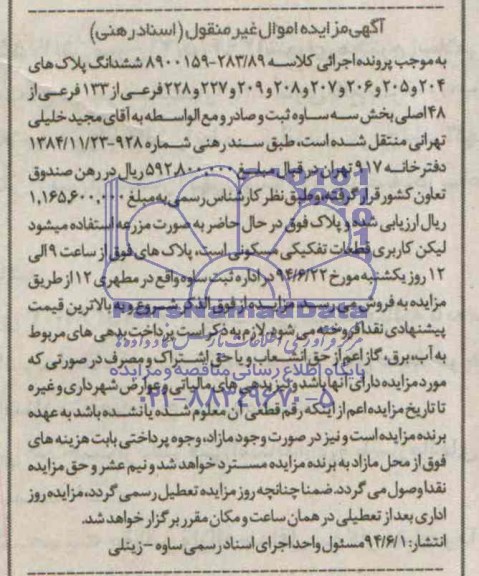 آگهی مزایده اموال غیر منقول (اسناد رهنی)
به موجب پرونده اجرائی کلاسه ۲۸۳/۸۹-۸۹۰۰۱۵۹ ششدانگ پلاک های
۲۰۴ و ۲۰۵ و ۲۰۶ و ۲۰۷ و ۲۰۸ و ۲۰۹ و ۲۲۷ و ۲۲۸ فرعی از ۱۳۳ فرعی از
۴۸ اصلی بخش سه ساوه ثبت و صادر و مع الواسطه به آقای مجید خلیلی
تهرانی منتقل شده است، طبق سند رهنی شماره ۹۲۸-۱۳۸۴/۱۱/۲۳
دفترخانه ۹۱۷ تهران در قبال مبلغ ۵۹۲,۸۰۰,۰۰۰ ریال در رهن صندوق
تعاون کشور قرار گرفته و طبق نظر کارشناس رسمی به مبلغ ۱,۱۶۵,۶۰۰,۰۰۰
ریال ارزیابی شده و پلاک فوق در حال حاضر به صورت مزرعه استفاده میشود
لیکن کاربری قطعات تفکیکی مسکونی است، پلاک های فوق از ساعت ۹ الی
۱۲ روز یکشنبه مورخ ۹۴/۶/۲۲ در اداره ثبت ساوه واقع در مطهری ۱۲ از طریق
مزایده به فروش می رسد. مزایده از فوق الذکر شروع و به بالاترین قیمت
پیشنهادی نقدا فروخته می شود. لازم به ذکر است پرداخت بدهی های مربوط
به آب، برق، گاز اعم از حق انشعاب و یا حق اشتراک و مصرف در صورتی که
مورد مزایده دارای آنها باشد و نیز بدهی های مالیاتی و عوارض شهرداری و غیره
تا تاریخ مزایده اعم از اینکه رقم قطعی آن معلوم شده یا نشده باشد به عهده
برنده مزایده است و نیز در صورت وجود مازاد، وجوه پرداختی بابت هزینه های
فوق از محل مازاد به برنده مزایده مسترد خواهد شد و نیم عشر و حق مزایده
نقدا وصول می گردد. ضمنا چنانچه روز مزایده تعطیل رسمی گردد، مزایده روز
اداری بعد از تعطیلی در همان ساعت و مکان مقرر برگزار خواهد شد.
انتشار: ۹۴/۶/۱ مسئول واحد اجرای اسناد رسمی ساوه - زینلی
ParsNamadData
پایگاه اطلاع رسانی مناقصه و مزایده
۰۲۱-۸۸۳۴۹۶۷۰-۵